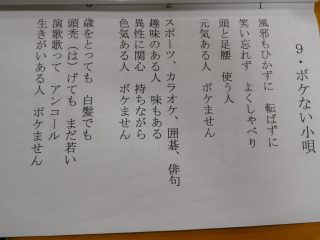 9・ボケない小唄
1
風邪もひかずに　転ばずに
笑い忘れず　よくしゃべり
頭と足腰　使う人
元気ある人　ボケません
2
スポーツ、カラオケ、囲碁、俳句
趣味のある人　味もある
異性に関心　持ちながら
色気ある人　ボケません
歳をとっても　白髪でも
頭禿（は）げても　まだ若い
演歌歌って　アンコール
生きがいある人　ボケません